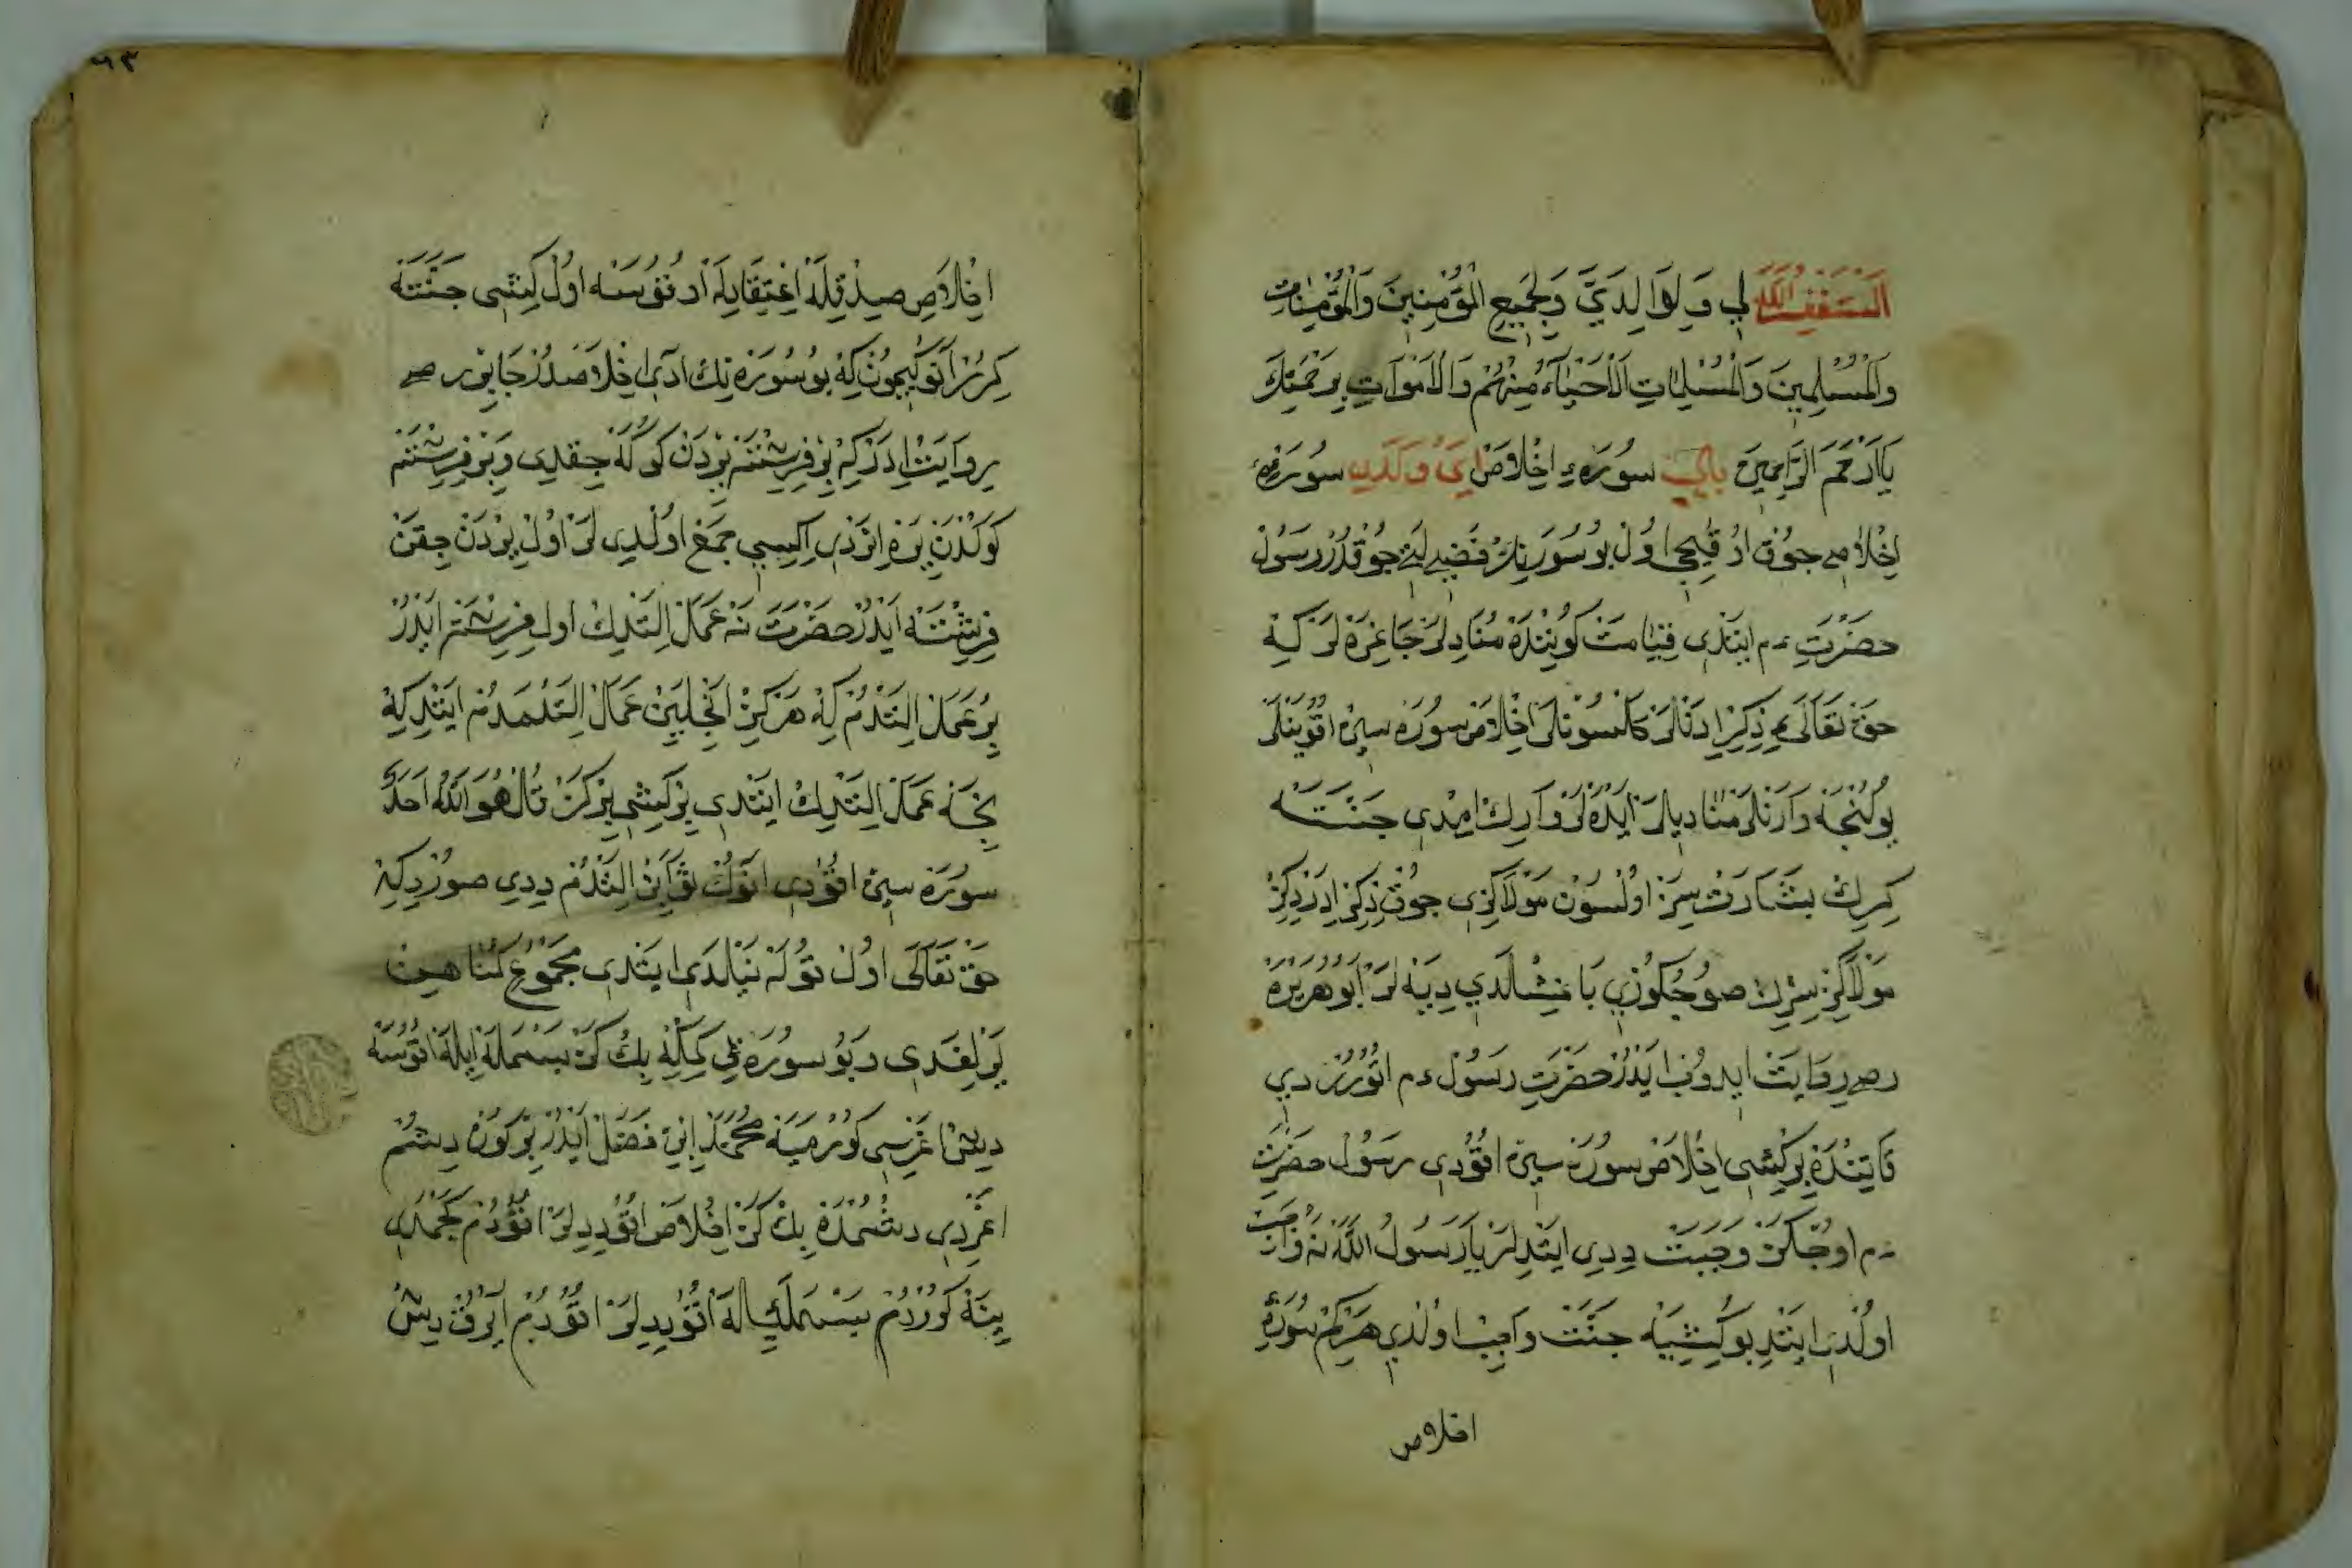 اَلسْتَغْفِرُاللّٰه لِي وَلِوَالِدَيَّ وَلِجَمِيعِ الْمُؤْمِنِينَ وَالْمُؤْمِنَاتِ
وَالْمُسْلِمِينَ وَالْمُسْلِمَاتِ اَلْاَحْيَآءِ مِنْهُمْ وَالْاَمْوَاتِ بِرَحْمَتِكَ
يَا اَرْحَمَ الرَّاحِمِينَ سُورَهءِ اِخْلَاصْ اَىْ وَلَدِى سُورَهءِ
اِخْلَاصِ جُوقْ اوُل بُو سُورَنِكْ فَضِيلَتِ جُوقْدُرْ رَسُولْ
حَضْرَتِ ءم ايتدى قِيَامَتْ كُونِنْدَهْ مُنَادِيلَرْ جَاغِرَهْ لَرْ كِهْ
حَقْ تَعَالَى ذِكِرْ ادَنْلَرْ كَلْسُونْلَرْ اخِلَاصْ سُورَهْ سِينْ اقُويَنْلَرْ
بُو كُنْجَهْ وَارَنْلَرْ مُنَادِيلَرْ اَيْدَهْ لَرْ وَارِكْ امْدِى جَنَّتَهْ
كِرِكْ بِشَارَتْ سِزَهْ اوُلْسُونْ مَوْلَاكِزِى جُوقْ ذِكِرْ ادَرْدِكِزْ
مَوْلَاكِزْ سِزِكْ صُوجُكُوزِى بَاغِشْلَدِى دِيَهْ لَرْ اَبُو هُرَيْرَهْ
رض رِوَايَتْ ايدُوبْ اَيْدُرْ حَضْرَتِ رَسُولْ ءم اتُورُرْدِى
قَاتِنْدَهْ بِرْكِشِى اخِلَاصْ سُورَهْ سِينْ اقُودِى رَسُولْ حَضْرَتِ
ءم اوُجْ كَرَّ وَجَبَتْ دِدِى ايتْدِلَرْ يَا رَسُولَ اللّٰهْ نَهْ وَاجِبْ
اولْدِى ايتْدِ بُو كِشِيَهْ جَنَّتْ وَاجِبْ اولْدِى هَرْكِمْ سُورَهءِ
اخلاص
٩٣
اِخْلَاصِ صِدْقِلَهْ اعْتِقَادِلَهْ اوُل كِشِى جَنَّتَهْ
كِرُرْ انُوكِيجُونْ كِهْ بُو سُورَهْ نِكْ ادِى اخِلَاصْدُرْ جَابِرْ رض
رِوَايَتْ ادَرْ كِهْ بِرْ فِرِشْتَهْ يِرْدَنْ كُوكَهْ جِقْدِى وَبِرْ فِرِشْتَهْ
كُوكْدَنْ يِرَهْ انَرْدِى اكِيسِى جَمَعْ اولْدِى لَرْ اوُلْ يِرْدَنْ جِقَنْ
فِرِشْتَهْ اَيْدُرْ حَضْرَتْ نَهْ عَمَلْ التْدِكْ اول فِرِشْتَهْ ايْدُرْ
بِرْ عَمَلْ التْدُمْ كِهْ هَرْكِزْ انْجِلَيِنْ عَمَلْ التْمَدُمْ ايتْدِ كِهْ
نِجَهْ عَمَلْ التْدِكْ ايتْدِى بِرْ كِشِى بِرْ كَرْ قُلْ هُوَ اللّٰهُ اَحَدٌ
سُورَهْ سِينْ اقُودِى انُوكْ ثَوَابِنْ التْدُمْ دِدِى صُورْدِ كِهْ
حَقْ تَعَالَى اوُلْ قُولَهْ نَيْلَدِى ايتْدِى مَجْمُوعْ كُنَاهِينْ
يَرْلِغَدِى وَ بُو سُورَهْ بِكْ كَرْ بَسْمَلَهْ اِيلَهْ اقُوسَهْ
دِيشْ اغْرِسِى كُورْمِيَهْ مُحَمَّدْ ابْنِ فَضْلْ اَيْدُرْ بِرْ كُونْ دِيشُمْ
اغْرِدِى دِشُمْدَهْ بِكْ كَرْ اِخْلَاصْ اقُودِلَرْ اقُودُمْ
يِنَهْ كُورْدُمْ بَسْمَلَهْ اقُودِلَرْ اقُودُمْ ايْرُقْ دِيشْ